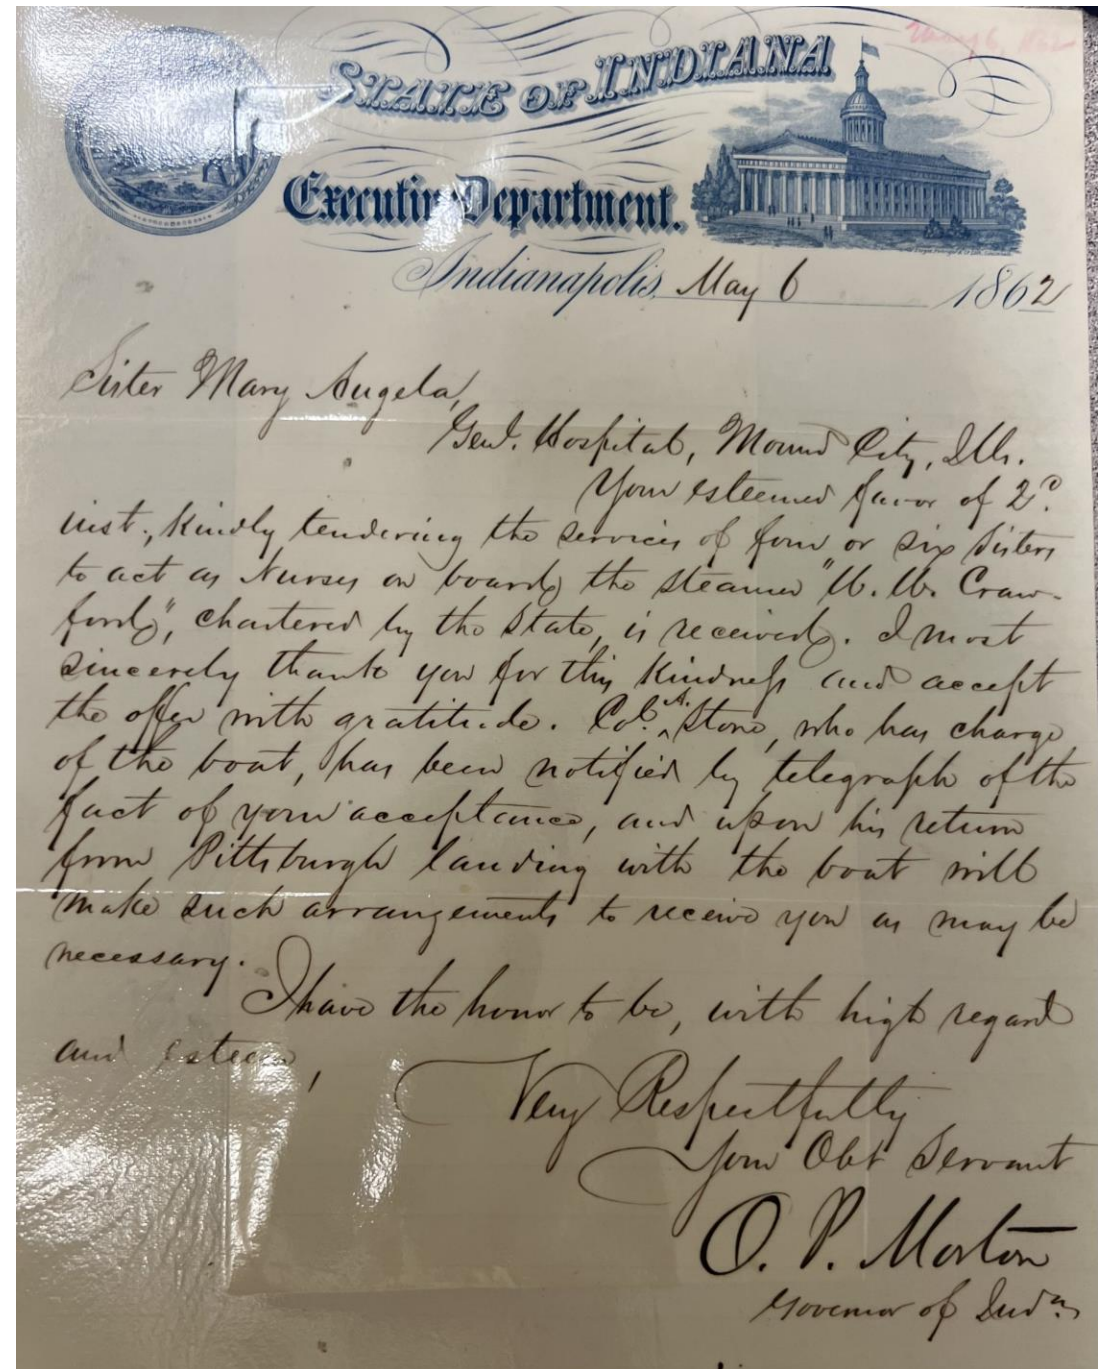 May 6, 1862
STATE OF INDIANA
Executive Department.
Indianapolis, May 6 1862
Sister Mary Angela,
Genl. Hospital, Mound City, Ills.
Your esteemed favor of 2d
inst., kindly tendering the services of four or six Sisters
to act as Nurses on board the steamer "W. W. Craw-
ford", chartered by the State, is received. I most
sincerely thank you for this kindness and accept
the offer with gratitude. Col. A. Stone, who has charge
of the boat, has been notified by telegraph of the
fact of your acceptance, and upon his return
from Pittsburgh landing with the boat will
make such arrangements to receive you as may be
necessary.
I have the honor to be, with high regard
and esteem,
Very Respectfully
Your Obt Servant
O. P. Morton
Governor of Inda.